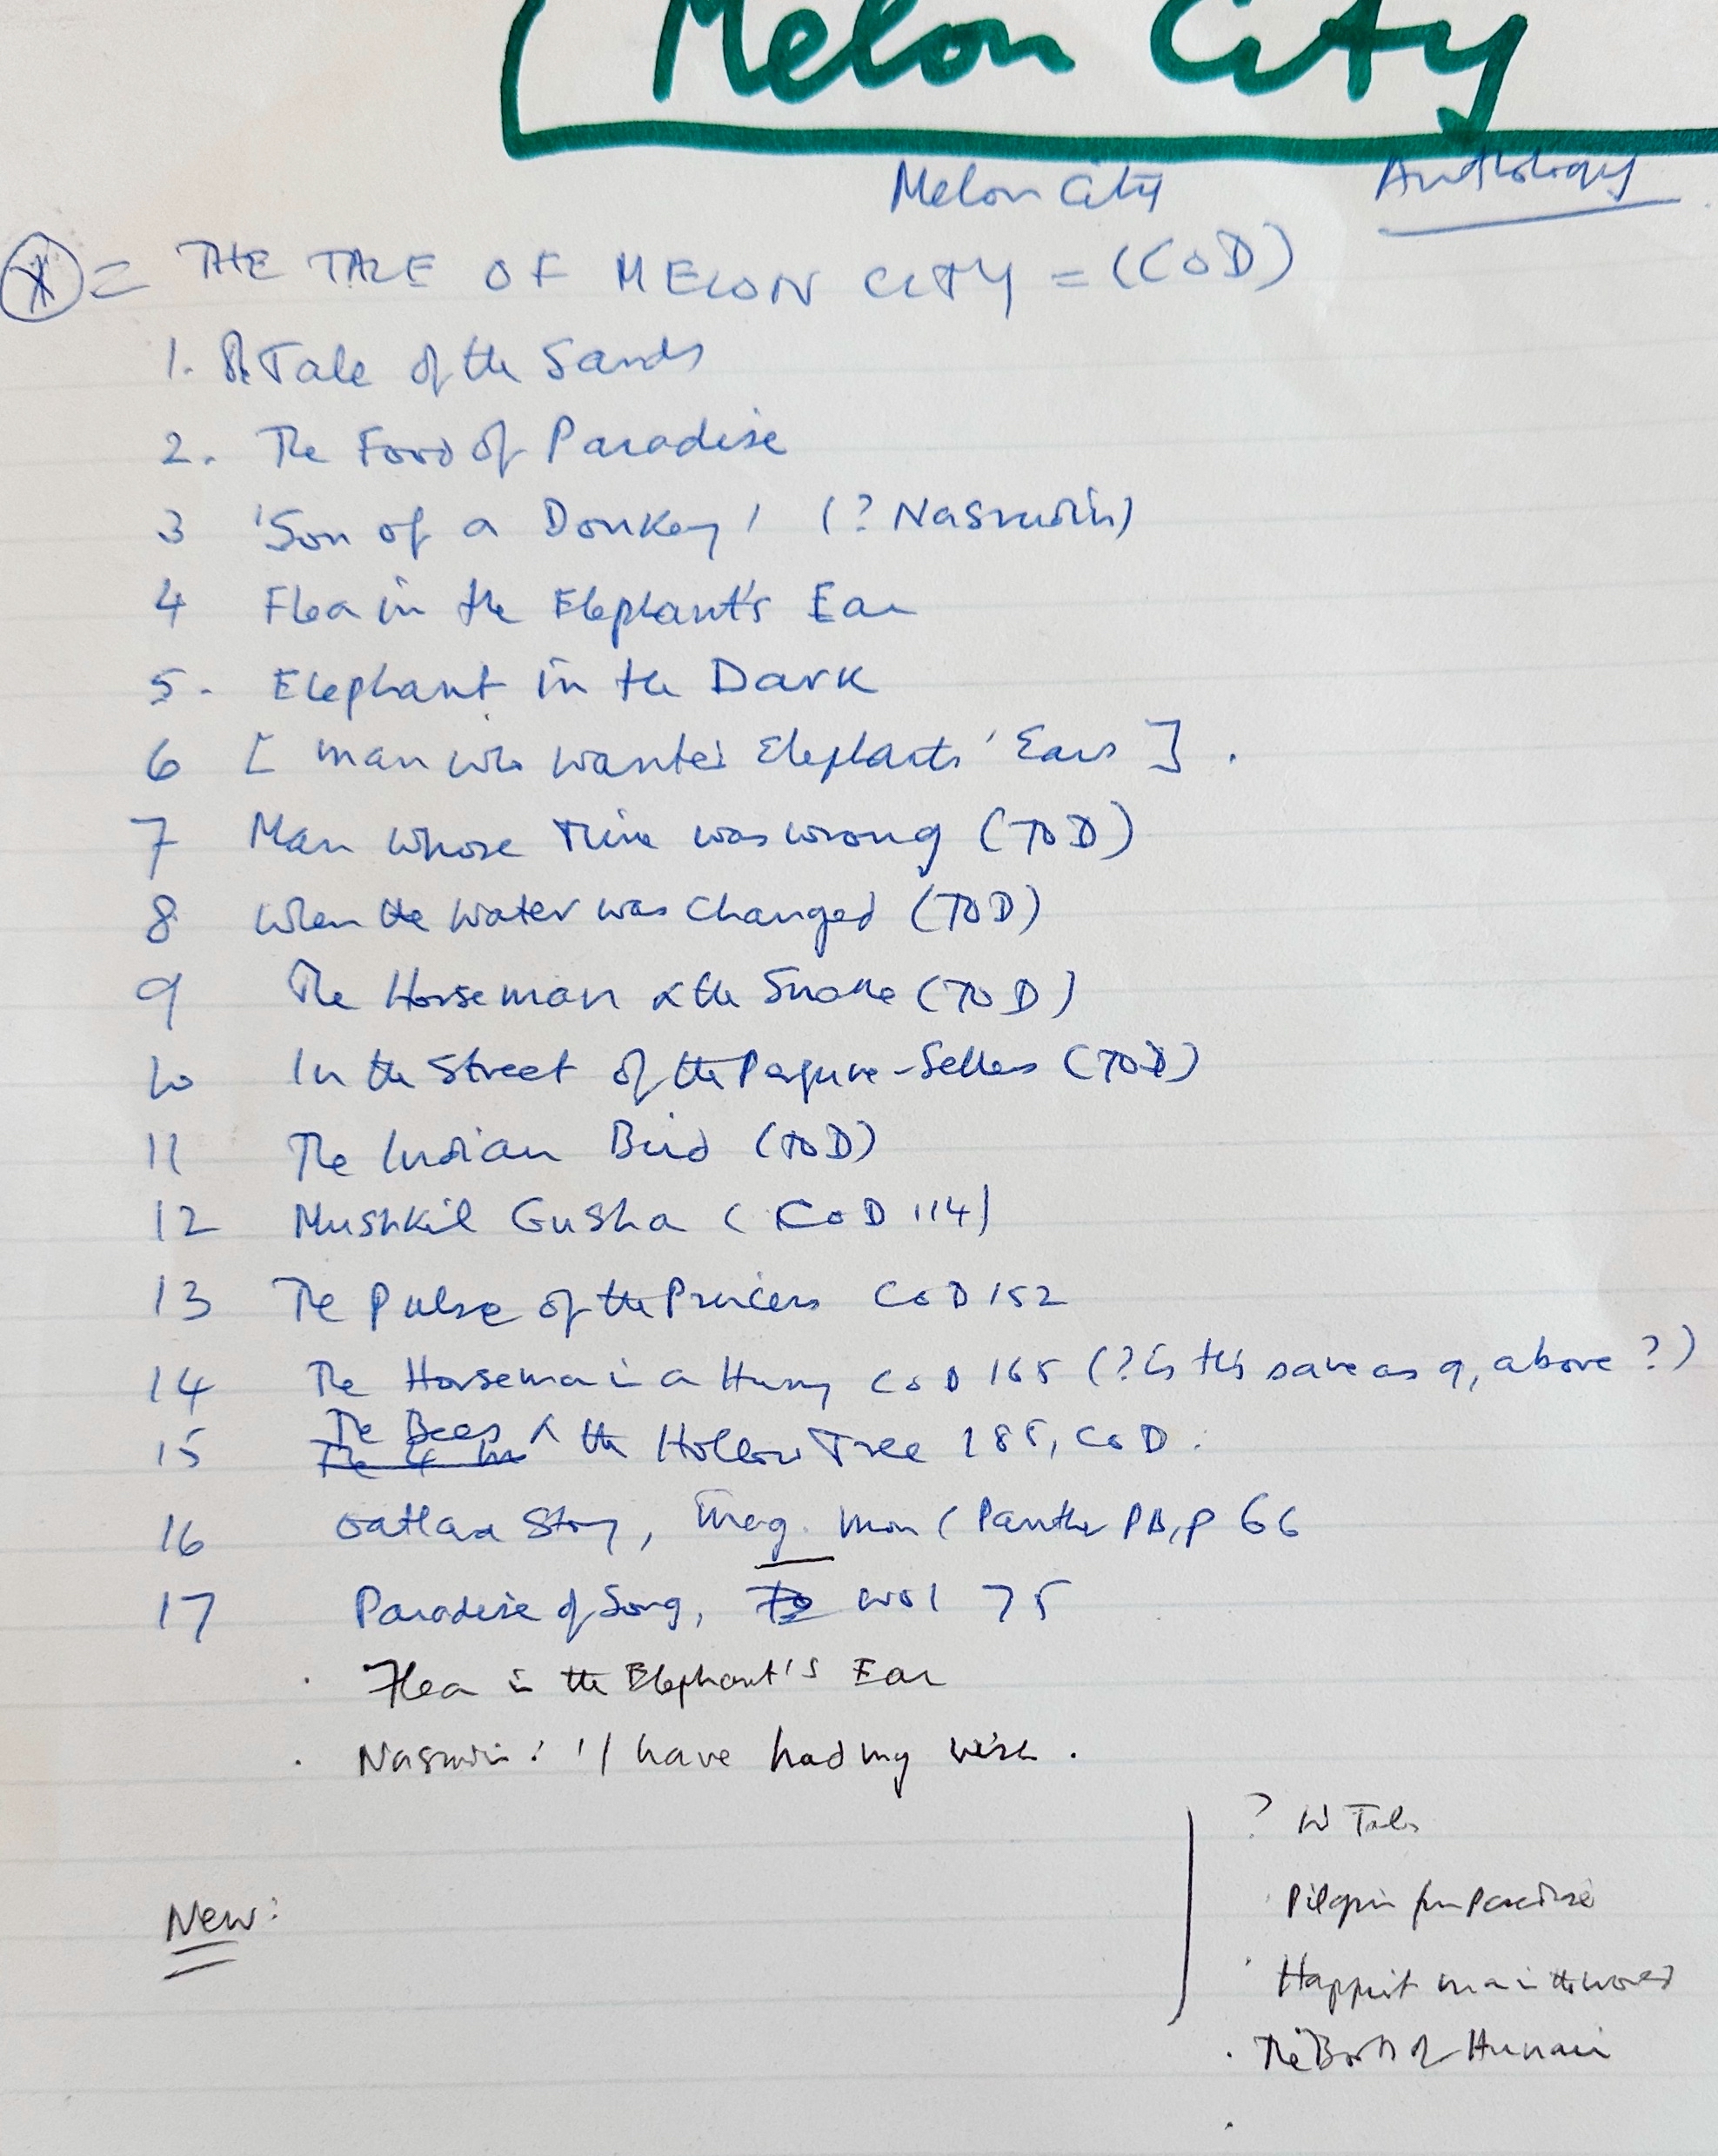 Melon City
Melon City Anthology
X = THE TALE OF MELON CITY = (CoD)
1. Tale of the Sands
2. The Food of Paradise
3 'Son of a Donkey' (? Nasrudin)
4 Flea in the Elephant's Ear
5. Elephant in the Dark
6 [ Man who wanted Elephants' Ears ].
7 Man whose time was wrong (TOD)
8 When the Water was Changed (TOD)
9 The Horseman & the Snake (TOD)
10 In the Street of the Perfume-Sellers (TOD)
11 The Indian Bird (TOD)
12 Mushkil Gusha (CoD 114)
13 The Pulse of the Princess CoD 152
14 The Horseman in a Hurry CoD 165 (? Is this same as 9, above ?)
15 The Bees & the Hollow Tree 185, CoD.
16 Story, Mag. Mon (Panther PB, p 66
17 Paradise of Song, WoI 75
· Flea in the Elephant's Ear
· Nasrudin: 'I have had my wish.
? W Tales
New:
Pilgrim from Paradise
· Happiest man in the world
· The Book of Hunain